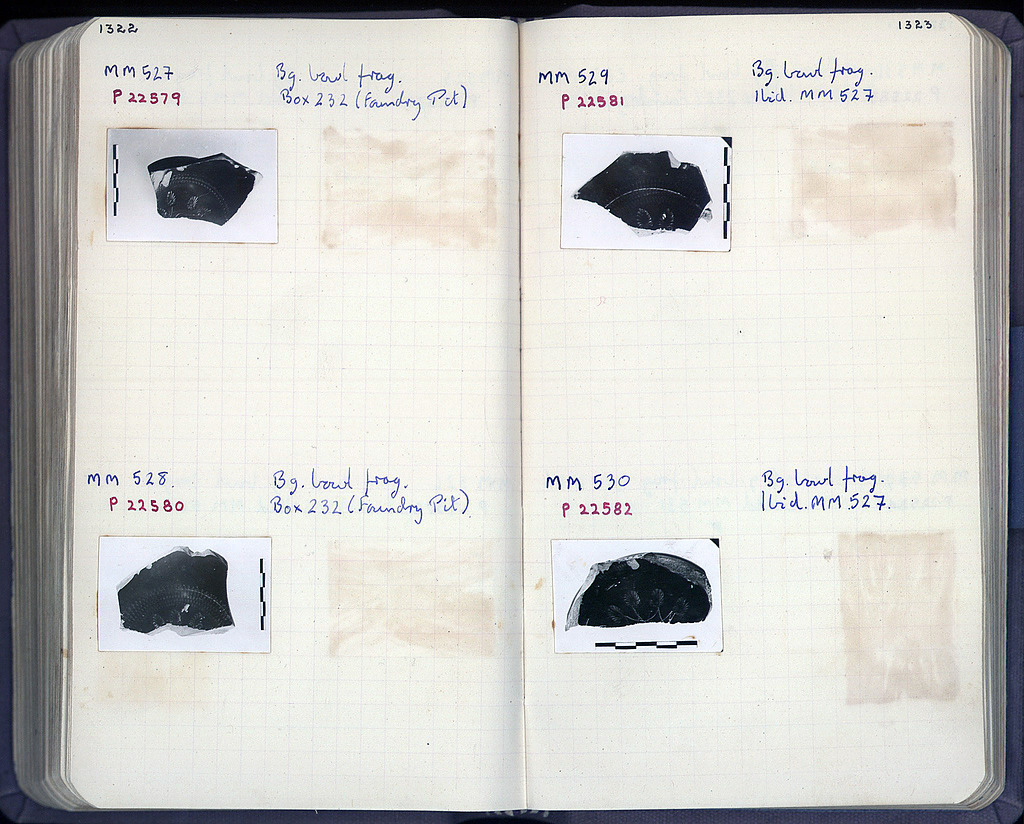 1322
MM 527
P 22579
Bg. bowl frag.
Box 232 (Foundry Pit)
MM 528.
P 22580
Bg. bowl frag.
Box 232 (Foundry Pit).
1323
MM 529
P 22581
Bg. bowl frag.
Ibid. MM 527
MM 530
P 22582
Bg. bowl frag.
Ibid. MM 527.